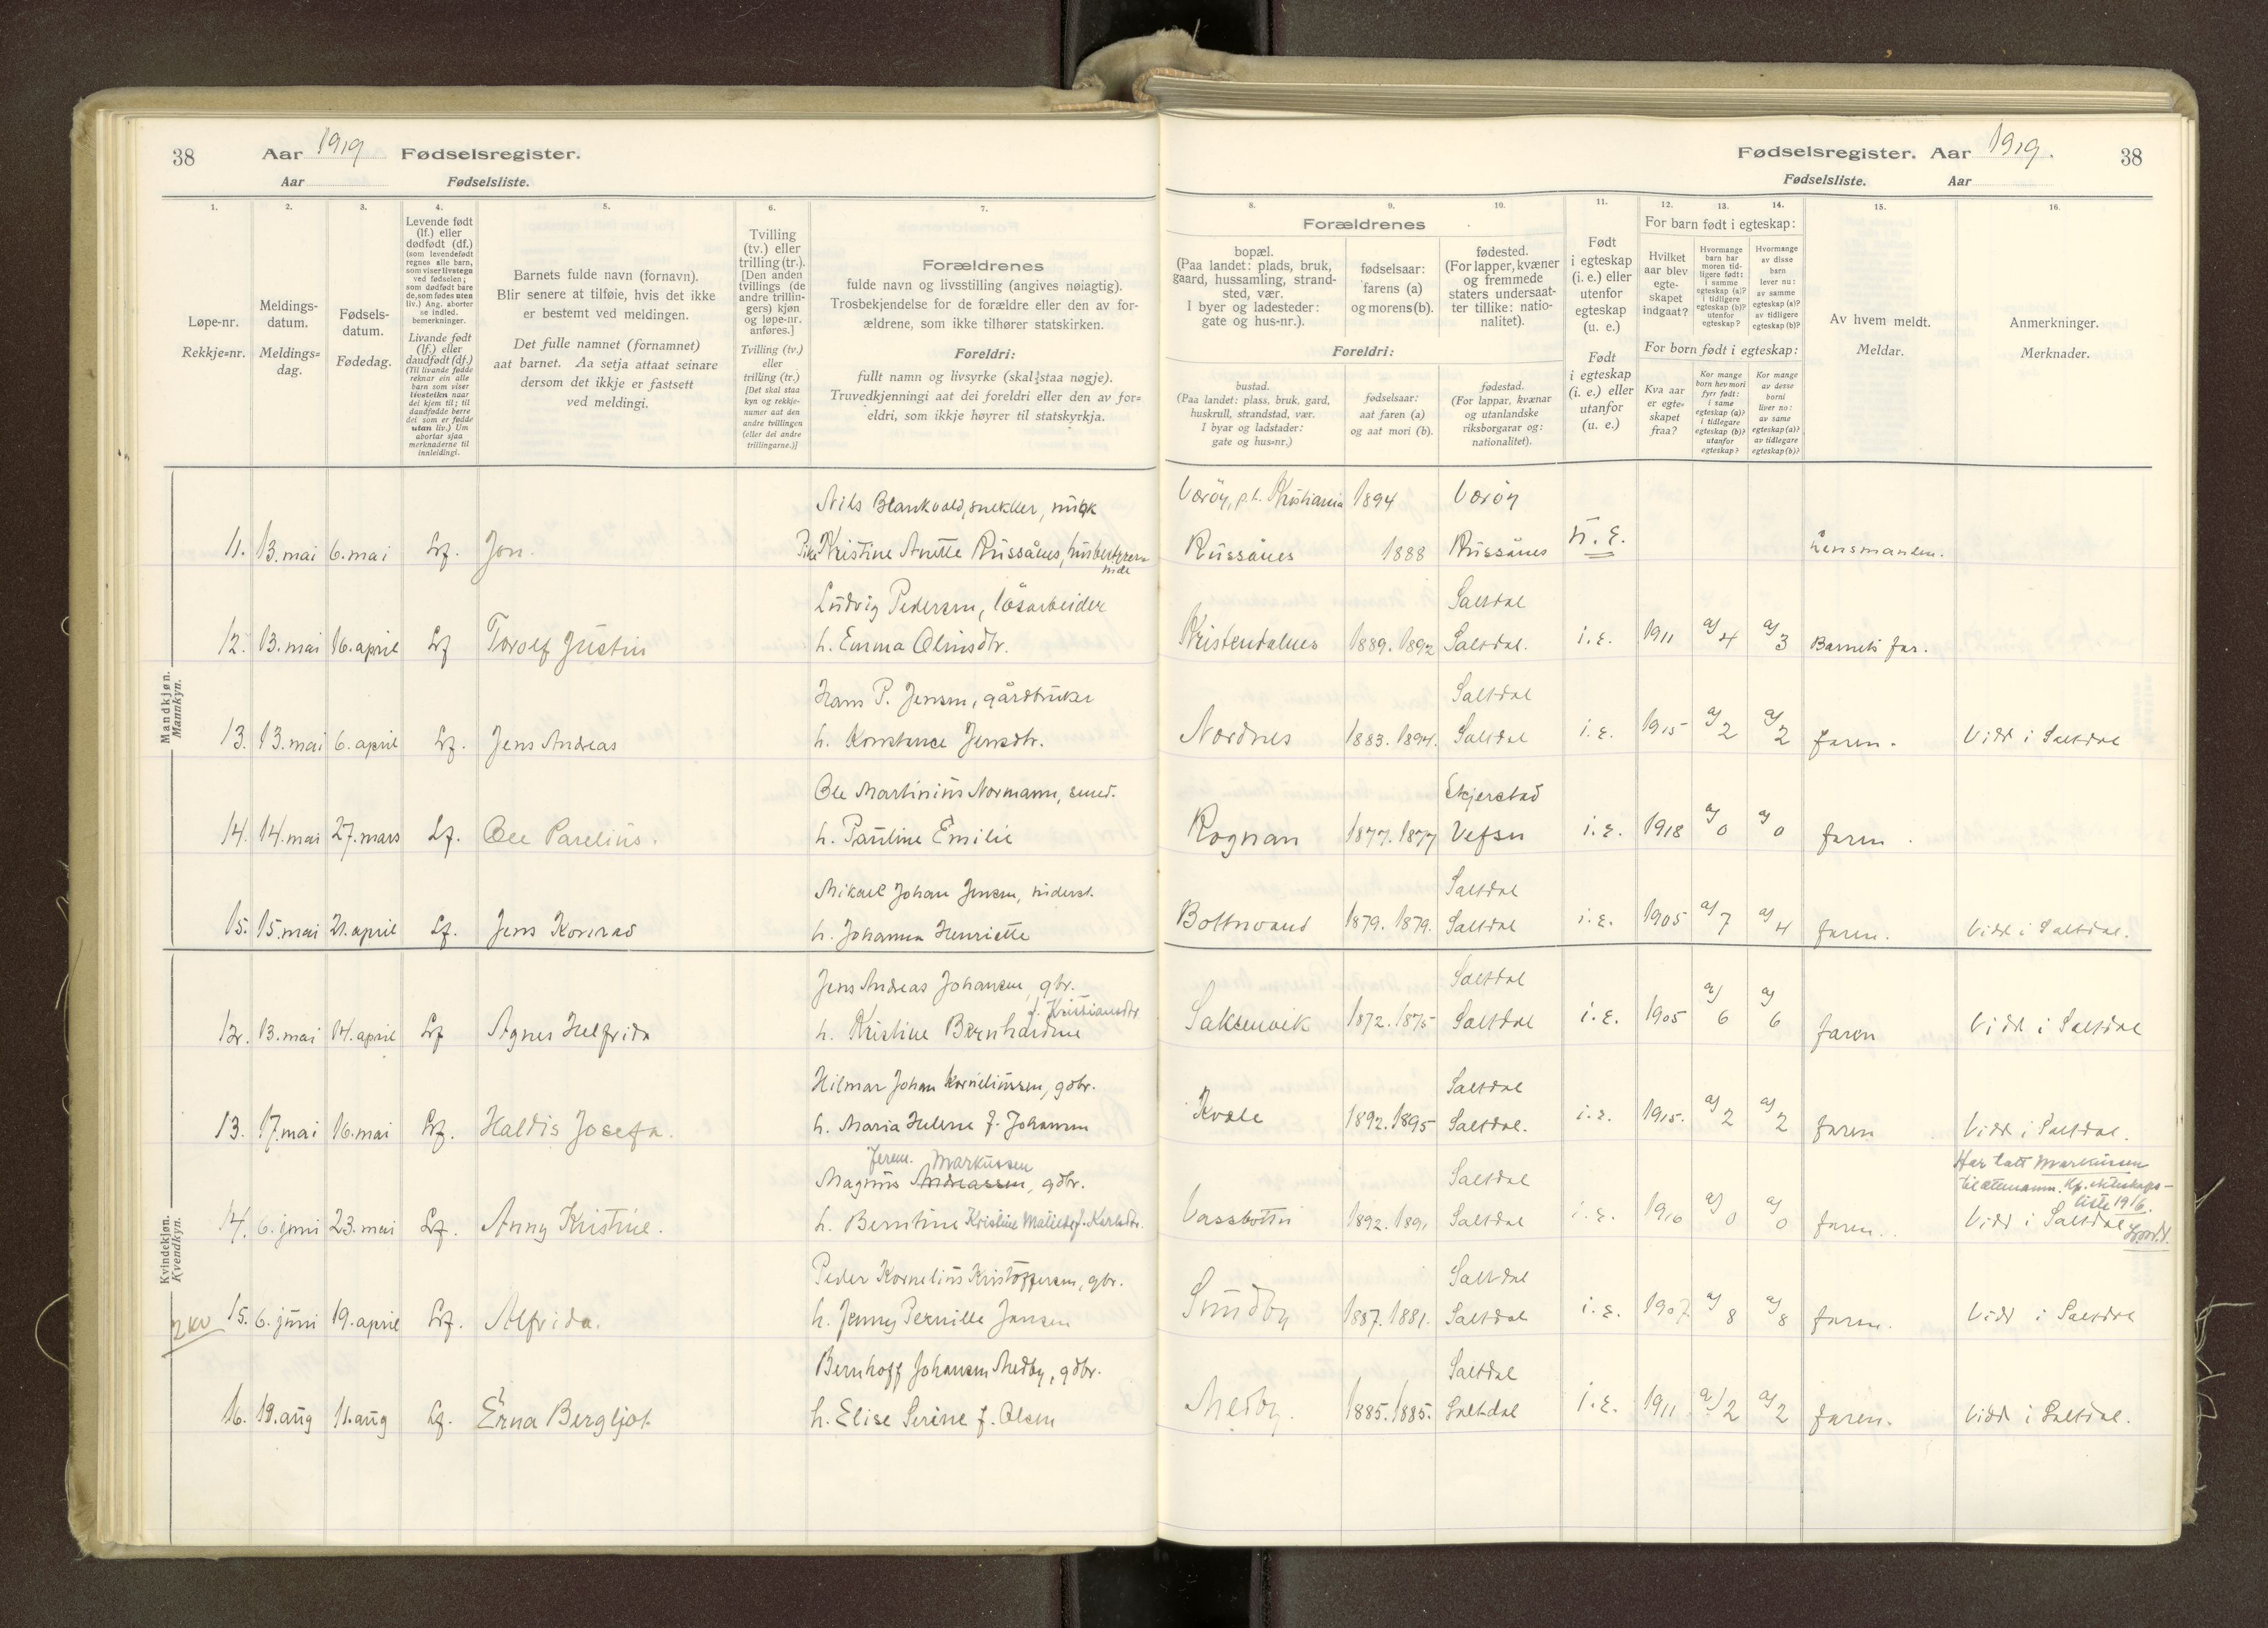 38 Aar 1919 Fødselsregister.
Aar Fødselsliste.
Fødselsregister. Aar 1919. 38
Fødselsliste. Aar
1. 2. 3. 4. 5. 6. 7.
Løpe-nr.
Rekkje=nr.
Meldings-
datum.
Meldings=
dag.
Fødsels-
datum.
Fødedag.
Levende født
(lf.) eller
dødfødt (df.)
(som levendefødt
regnes alle barn,
som viser livstegn
ved fødselen;
som dødfødt bare
de, som fødes uten
liv.) Ang. aborter
se indled.
bemerkninger.
Livande født
(lf.) eller
daudfødt (df.)
(Til livande fødde
reknar ein alle
barn som viser
livsteikn naar
dei kjem til; til
daudfødde berre
dei som er fødde
utan liv.) Um
abortar sjaa
merknaderne til
innleidingi.
Barnets fulde navn (fornavn).
Blir senere at tilføie, hvis det ikke
er bestemt ved meldingen.
Det fulle namnet (fornamnet)
aat barnet. Aa setja attaat seinare
dersom det ikkje er fastsett
ved meldingi.
Tvilling
(tv.) eller
trilling (tr.).
[Den anden
tvillings (de
andre trillin-
gers) kjøn
og løpe-nr.
anføres.]
Tvilling (tv.)
eller
trilling (tr.)
[Det skal staa
kyn og rekkje-
numer aat den
andre tvillingen
(eller dei andre
trillingarne.)]
Forældrenes
fulde navn og livsstilling (angives nøiagtig).
Trosbekjendelse for de forældre eller den av for-
ældrene, som ikke tilhører statskirken.
Foreldri:
fullt namn og livsyrke (skal staa nøgje).
Truvedkjenningi aat dei foreldri eller den av for=
eldri, som ikkje høyrer til statskyrkja.
8. 9. 10. 11. 12. 13. 14. 15. 16.
Forældrenes
bopæl.
(Paa landet: plads, bruk,
gaard, hussamling, strand-
sted, vær.
I byer og ladesteder:
gate og hus-nr.).
fødselsaar:
farens (a)
og morens (b).
fødested.
(For lapper, kvæner
og fremmede
staters undersaat-
ter tillike: natio-
nalitet).
Foreldri:
bustad.
(Paa landet: plass, bruk, gard,
huskrull, strandstad, vær.
I byar og ladstader:
gate og hus=nr.)
fødselsaar:
aat faren (a)
og aat mori (b).
fødestad.
(For lappar, kvænar
og utanlandske
riksborgarar og:
nationalitet).
Født
i egteskap
(i. e.) eller
utenfor
egteskap
(u. e.)
Født
i egteskap
(i. e.) eller
utanfor
egteskap
(u. e.)
For barn født i egteskap:
Hvilket
aar blev
egte-
skapet
indgaat?
Hvormange
barn har
moren tid-
ligere født:
i samme
egteskap (a)?
i tidligere
egteskap (b)?
utenfor
egteskap?
Hvormange
av disse
barn
lever nu:
av samme
egteskap (a)?
av tidligere
egteskap (b)?
For born født i egteskap:
Kva aar
er egte-
skapet
fraa?
Kor mange
born hev mori
fyrr født:
i same
egteskap (a)?
i tidlegare
egteskap (b)?
utanfor
egteskap?
Kor mange
av desse
borni
liver no:
av same
egteskap (a)?
av tidlegare
egteskap (b)?
Av hvem meldt.
Meldar.
Anmerkninger.
Merknader.
Mandkjøn.
Mannkyn.
Nils Blankvold, snekker, Værøy, p.t. Kristiania 1894 Værøy
11. 13. mai 6. mai Lf. Jon. Pike Kristine Anette Russånes, husbestyrer- Russånes 1888 Russånes u. e. Lensmanden.
inde
Ludvig Pedersen, løsarbeider Saltdal
12. 13. mai 16. april Lf Torolf Justin h. Emma Olinsdtr. 1889. 1892 Saltdal. i. e. 1911 a/4 a/3 Barnets far.
Hans P. Jensen, gårdbruker Saltdal
13. 13. mai 6. april Lf. Jens Andreas h. Konstance Jensdtr. Nordnes 1883. 1894. Saltdal i. e. 1915 a/2 a/2 faren. Vidd i Saltdal
Ole Martinius Normann, smed. Skjerstad
14. 14. mai 27. mars Lf. Ole Parelius. h. Pauline Emilie Rognan 1877. 1877 Vefsn i. e. 1918 a/0 a/0 faren.
Mikael Johan Jensen, Saltdal
15. 15. mai 21. april Lf. Jens Konrad h. Johanna Henriette Botnvand 1879. 1879. Saltdal i. e. 1905 a/7 a/4 faren. Vidd i Saltdal.
Kvindekjøn.
Kvendkyn.
Jens Andreas Johansen, gbr. Saltdal
f. Kristiansdtr
12. 13. mai 14. april Lf Agnes Helfrida h. Kristine Bernhardine Saksenvik 1872. 1875 Saltdal i. e. 1905 a/6 a/6 faren Vidd i Saltdal
Hilmar Johan Kornelinssen, gdbr. Saltdal
13. 17. mai 16. mai Lf. Haldis Josefa. h. Maria Helene f. Johansen Kvæle 1892. 1895 Saltdal. i. e. 1915. a/2 a/2 faren Vidd i Saltdal.
Jerem. Markussen Har tatt Markussen
Magnus Andreassen, gdbr. Saltdal til ættenamn. Kf. ekteskaps-
liste 1916.
14. 6. juni 23. mai Lf. Anny Kristine. h. Berntine Kristine f. Karlsdtr. Vassbotn 1892. 1891 Saltdal i. e. 1916 a/0 a/0 faren. Vidd i Saltdal
Peder Kornelius Kristoffersen, gbr. Saltdal
2 kv 15. 6. juni 19. april Lf. Alfrida. h. Jenny Pernille Jansen Sundby 1887. 1881. Saltdal i. e. 1907 a/8 a/8 faren. Vidd i Saltdal
Bernhoff Johansen Medby, gdbr. Saltdal
16. 18. aug 11. aug Lf. Erna Bergljot h. Elise Serine f. Olsen Medby. 1885. 1885. Saltdal i. e. 1911 a/2 a/2 faren. Vidd i Saltdal.